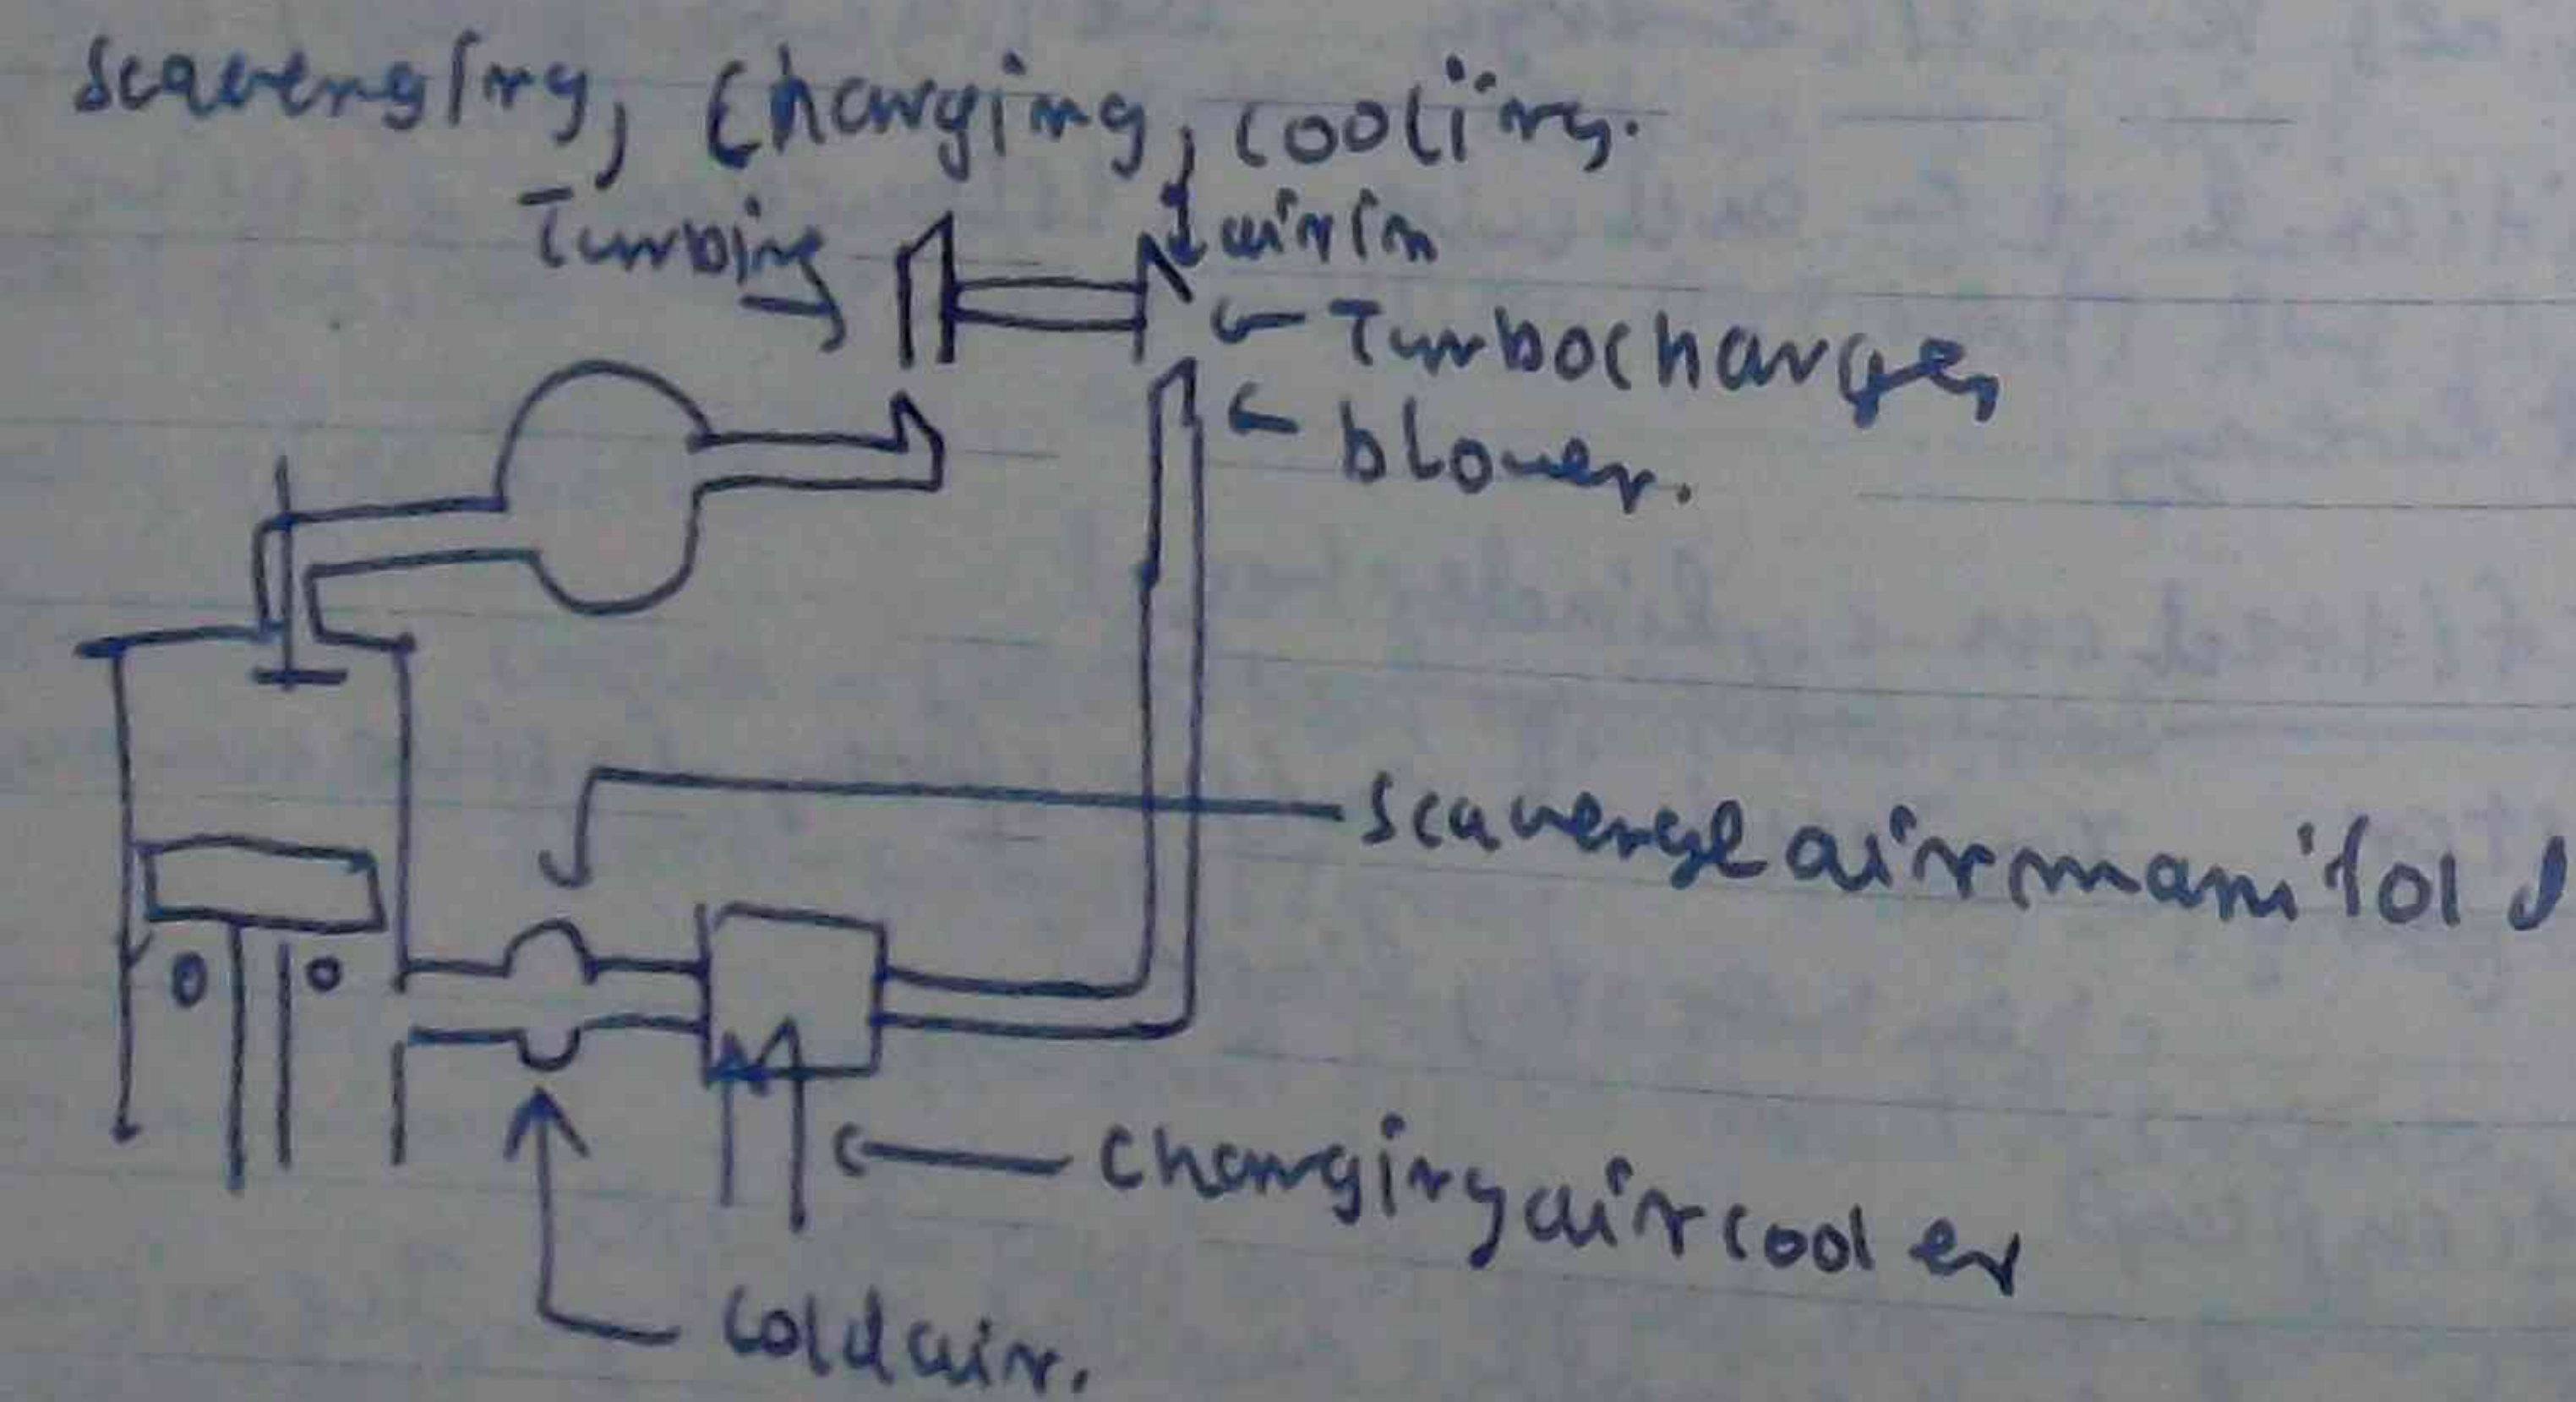 Scavenging, Charging, cooling.
Turbine
air in
Turbocharger
blower.
Scavenge air manifold
Charging air cooler
Cold air.